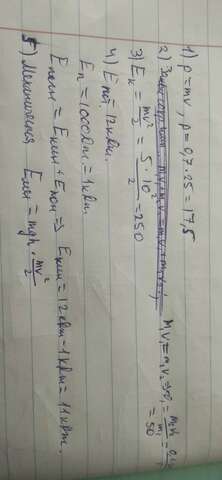 1) p=mv, p=0,7·25=17,5
2) m₁v₁=m₂v₂ =>v₁= m₂v₂/m₁
= 50
3) Eк= mv²/2 = 5·10²/2 =250
4) Eпол=12кДж.
Eп=1000Дж=1кДж.
Eполн=Eкин+Eпон=> Eкин=12кДж-1кДж=11кДж.
5) Механическая Eмех=mgh· mv²/2